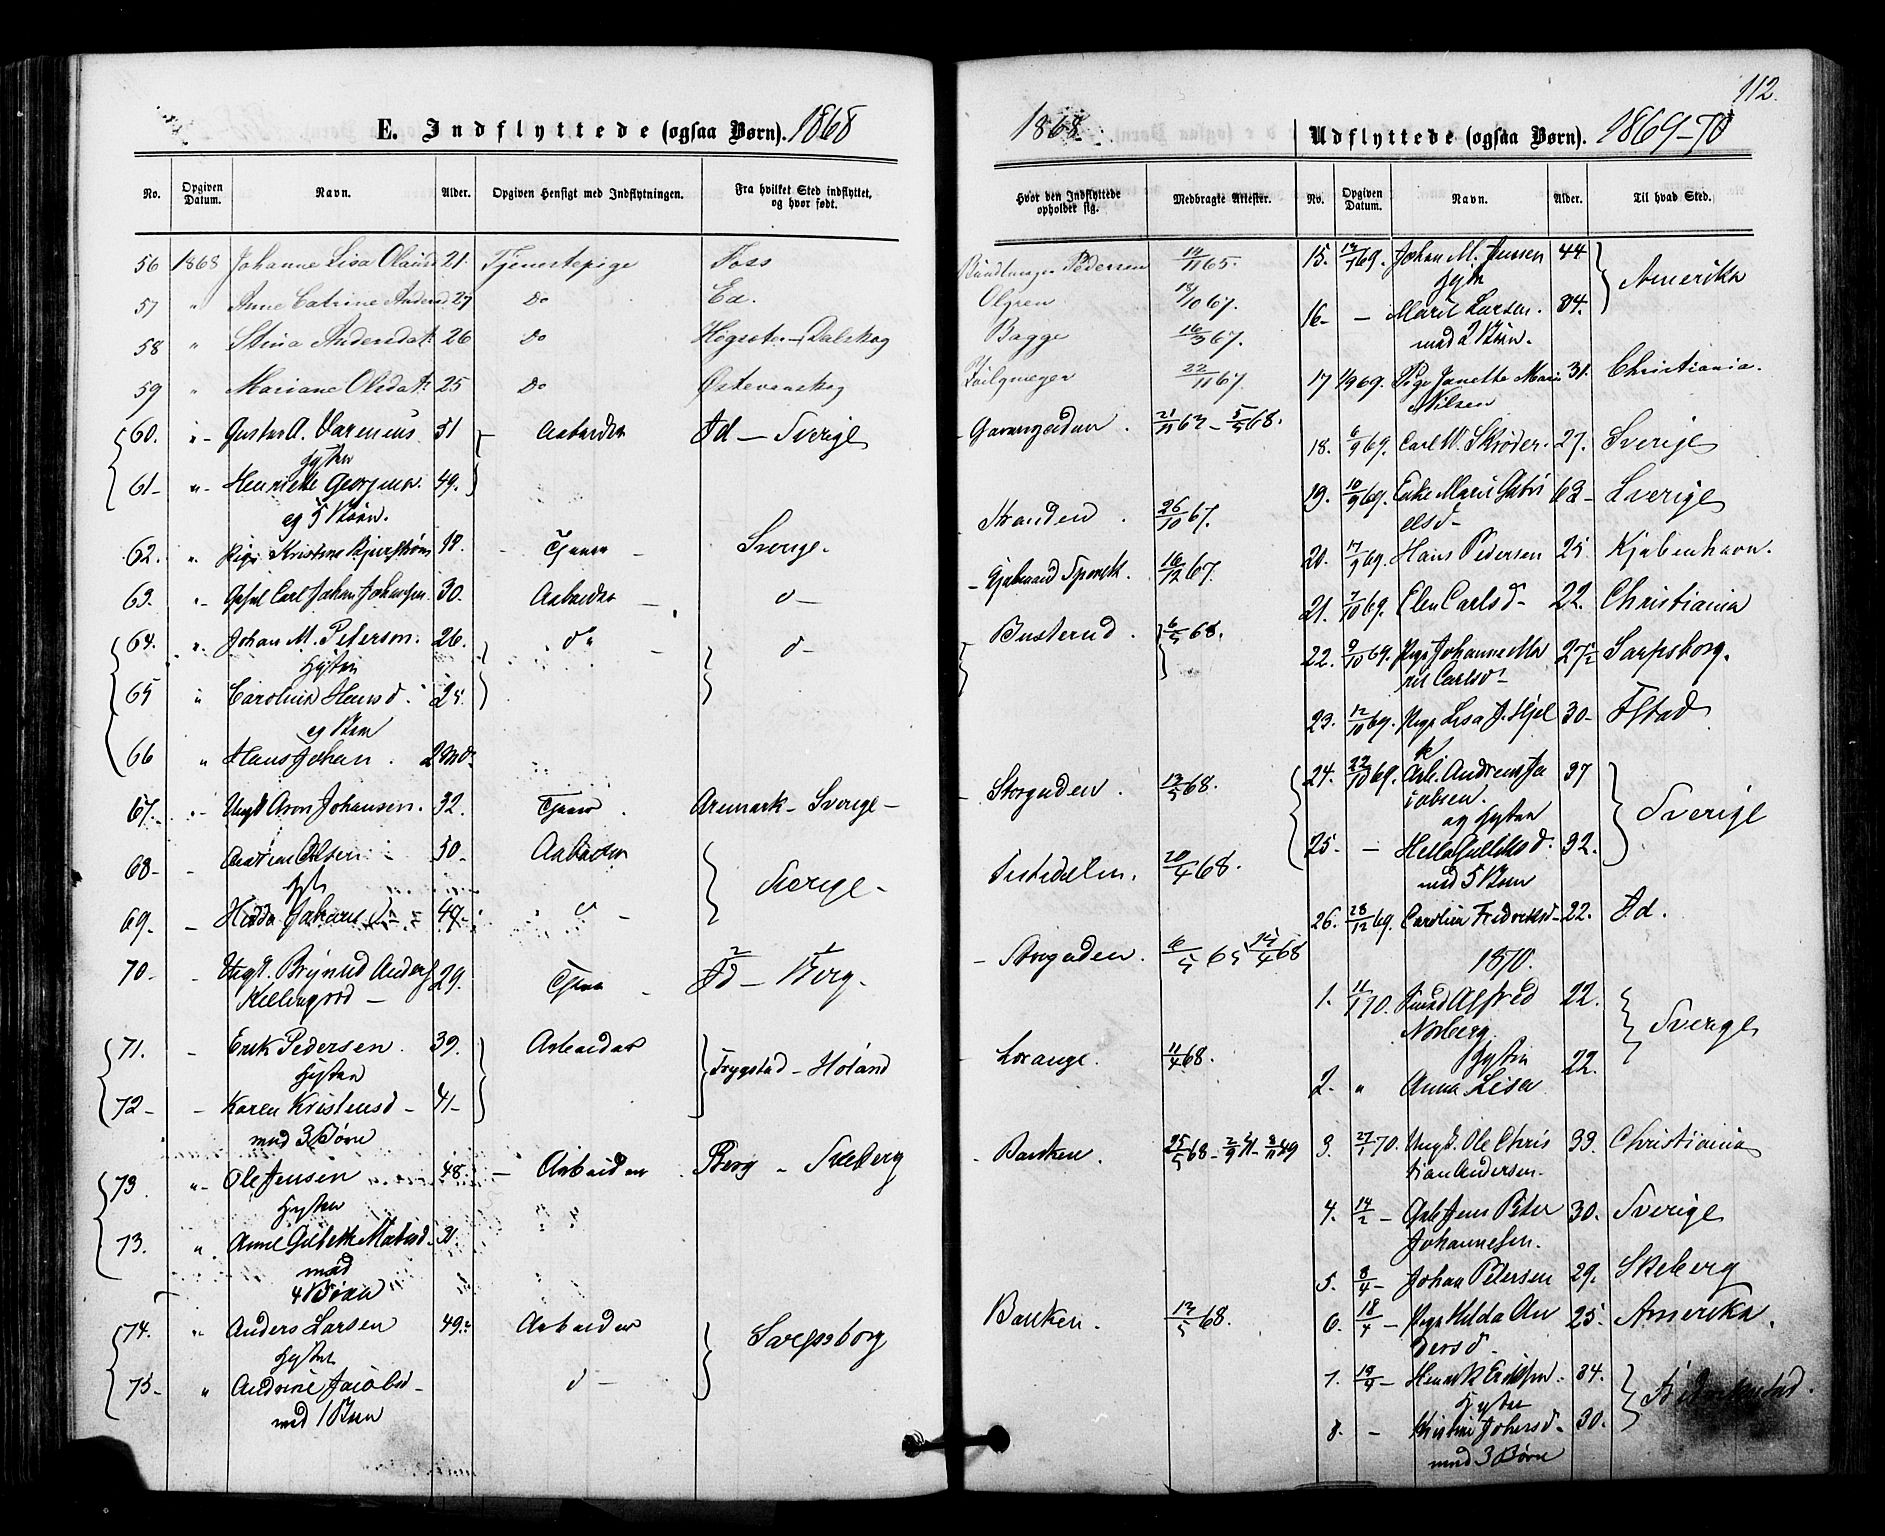 112.
E. Indflyttede (ogsaa Børn). 1868
No. Opgiven Datum. Navn. Alder. Opgiven Hensigt med Indflytningen. Fra hvilket Sted indflyttet, og hvor født.
56 1868 Johanne Lisa 21. Tjenestepige Foss
57 " Anne Catrine Andersd 27 Do Ed.
58 " Stina Andersdatr 26 Do
59 " Mariane Olsdatr 25 Do
60. " - Gustav A. Varenius 51 Arbeider Id - Sverige
Hustru
61 - " - Henriette Georgina. 49.
og 5 Børn.
62. " Pige Kristine 18. Tjener - Sverige.
63. " - Carl Johan Johansen 30. Arbeider - d -
64. " Johan M. Peterson. 26. do d -
Hustru
65 " Carolina Hansd. 25.
og Børn
66 " Hans Johan. 2 Md.
67. " - Ungk Aron Johansen. 32. Tjener Aremark - Sverige -
68 - - Olsen 50. Arbeider Sverige -
69 - - Hedda 47 - d -
70 - - Ungk. Anders 29. Tjener Id - Berg.
71. - Erik Pedersen. 39. Arbeider Trygstad - Høland
Hustru
72 - - Karen Kristensd - 41 -
med 3 Børn
73 " - Ole Jensen 48 - Arbeider Berg - Skeberg
Hustru
73. " Anne 31.
med
4 Børn
74. " Anders Larsen 49. Arbeider Sarpsborg
Hustru
75 - " Andrine Jacobsd - d -
med 1 Barn
1868
Hvor den Indflyttede opholder sig. Medbragte Attester.
Pedersen 14/11 65.
Olsen 18/10 67.
Bagge 16/3 67.
22/11 67.
21/11 62 - 5/5 68.
Stranden. 26/10 67.
16/12 67.
Busterud. 6/5 68.
Storgaden. 13/5 68.
Tistedalen. 20/4 68.
- Storgaden. 6/5 65 24/4 68
Lorange. 11/4 68.
- Banken. 25/5 68 -
Banken. 13/5 68.
Udflyttede (ogsaa Børn). 1869-70
No. Opgiven Datum. Navn. Alder. Til hvad Sted.
15. 69. Johan M. Jensen 44 Amerika
Hustru
16 - - Marit Larsen. 34.
med 2 Børn.
17 69. Pige Janette Marie 31. Christiania.
Nilsen
18. 6/9 69. Carl W. Skrøder. 27. Sverige
19. 10/9 69. Enke Marie Gabri 63 - Sverige
elsd -
20. 17/9 69. Hans Pedersen 25 Kjøbenhavn.
21. 7/10 69. Elen Carlsd - 22. Christiania
22. 9/10 69. Pige Johanne Ma 27½ Sarpsborg.
rie Carlsd
23. 12/10 69. Pige Lisa J. Hjel 30 - Ystad
24. 22/10 69. Arb. Andreas Ja 37 Sverige
cobsen.
og Hustru
25. - Helle Gulliksd. 32.
med 5 Børn
26. 28/12 69. Caroline Fredriksd - 22. Id.
1870.
1. 11/1 70. Svend Alfred 22. Sverige
Norberg
Hustru
2. " Anna Lisa 22.
3. 27/1 70. Ungk. Ole Chris 33. Christiania
tian Andersen.
4. 14/2 - Arb Jens Peter 30. Sverige
Johannesen.
5. 8/4 - Johan Petersen 29. Skeberg
6. 18/4 - Pige Hilda An 25. Amerika.
dersd.
7. 19/4 - Henrik Eriksen. 34. Fredrikstad.
Hustru
8. - Kristine Johansd. 30.
med 3 Børn